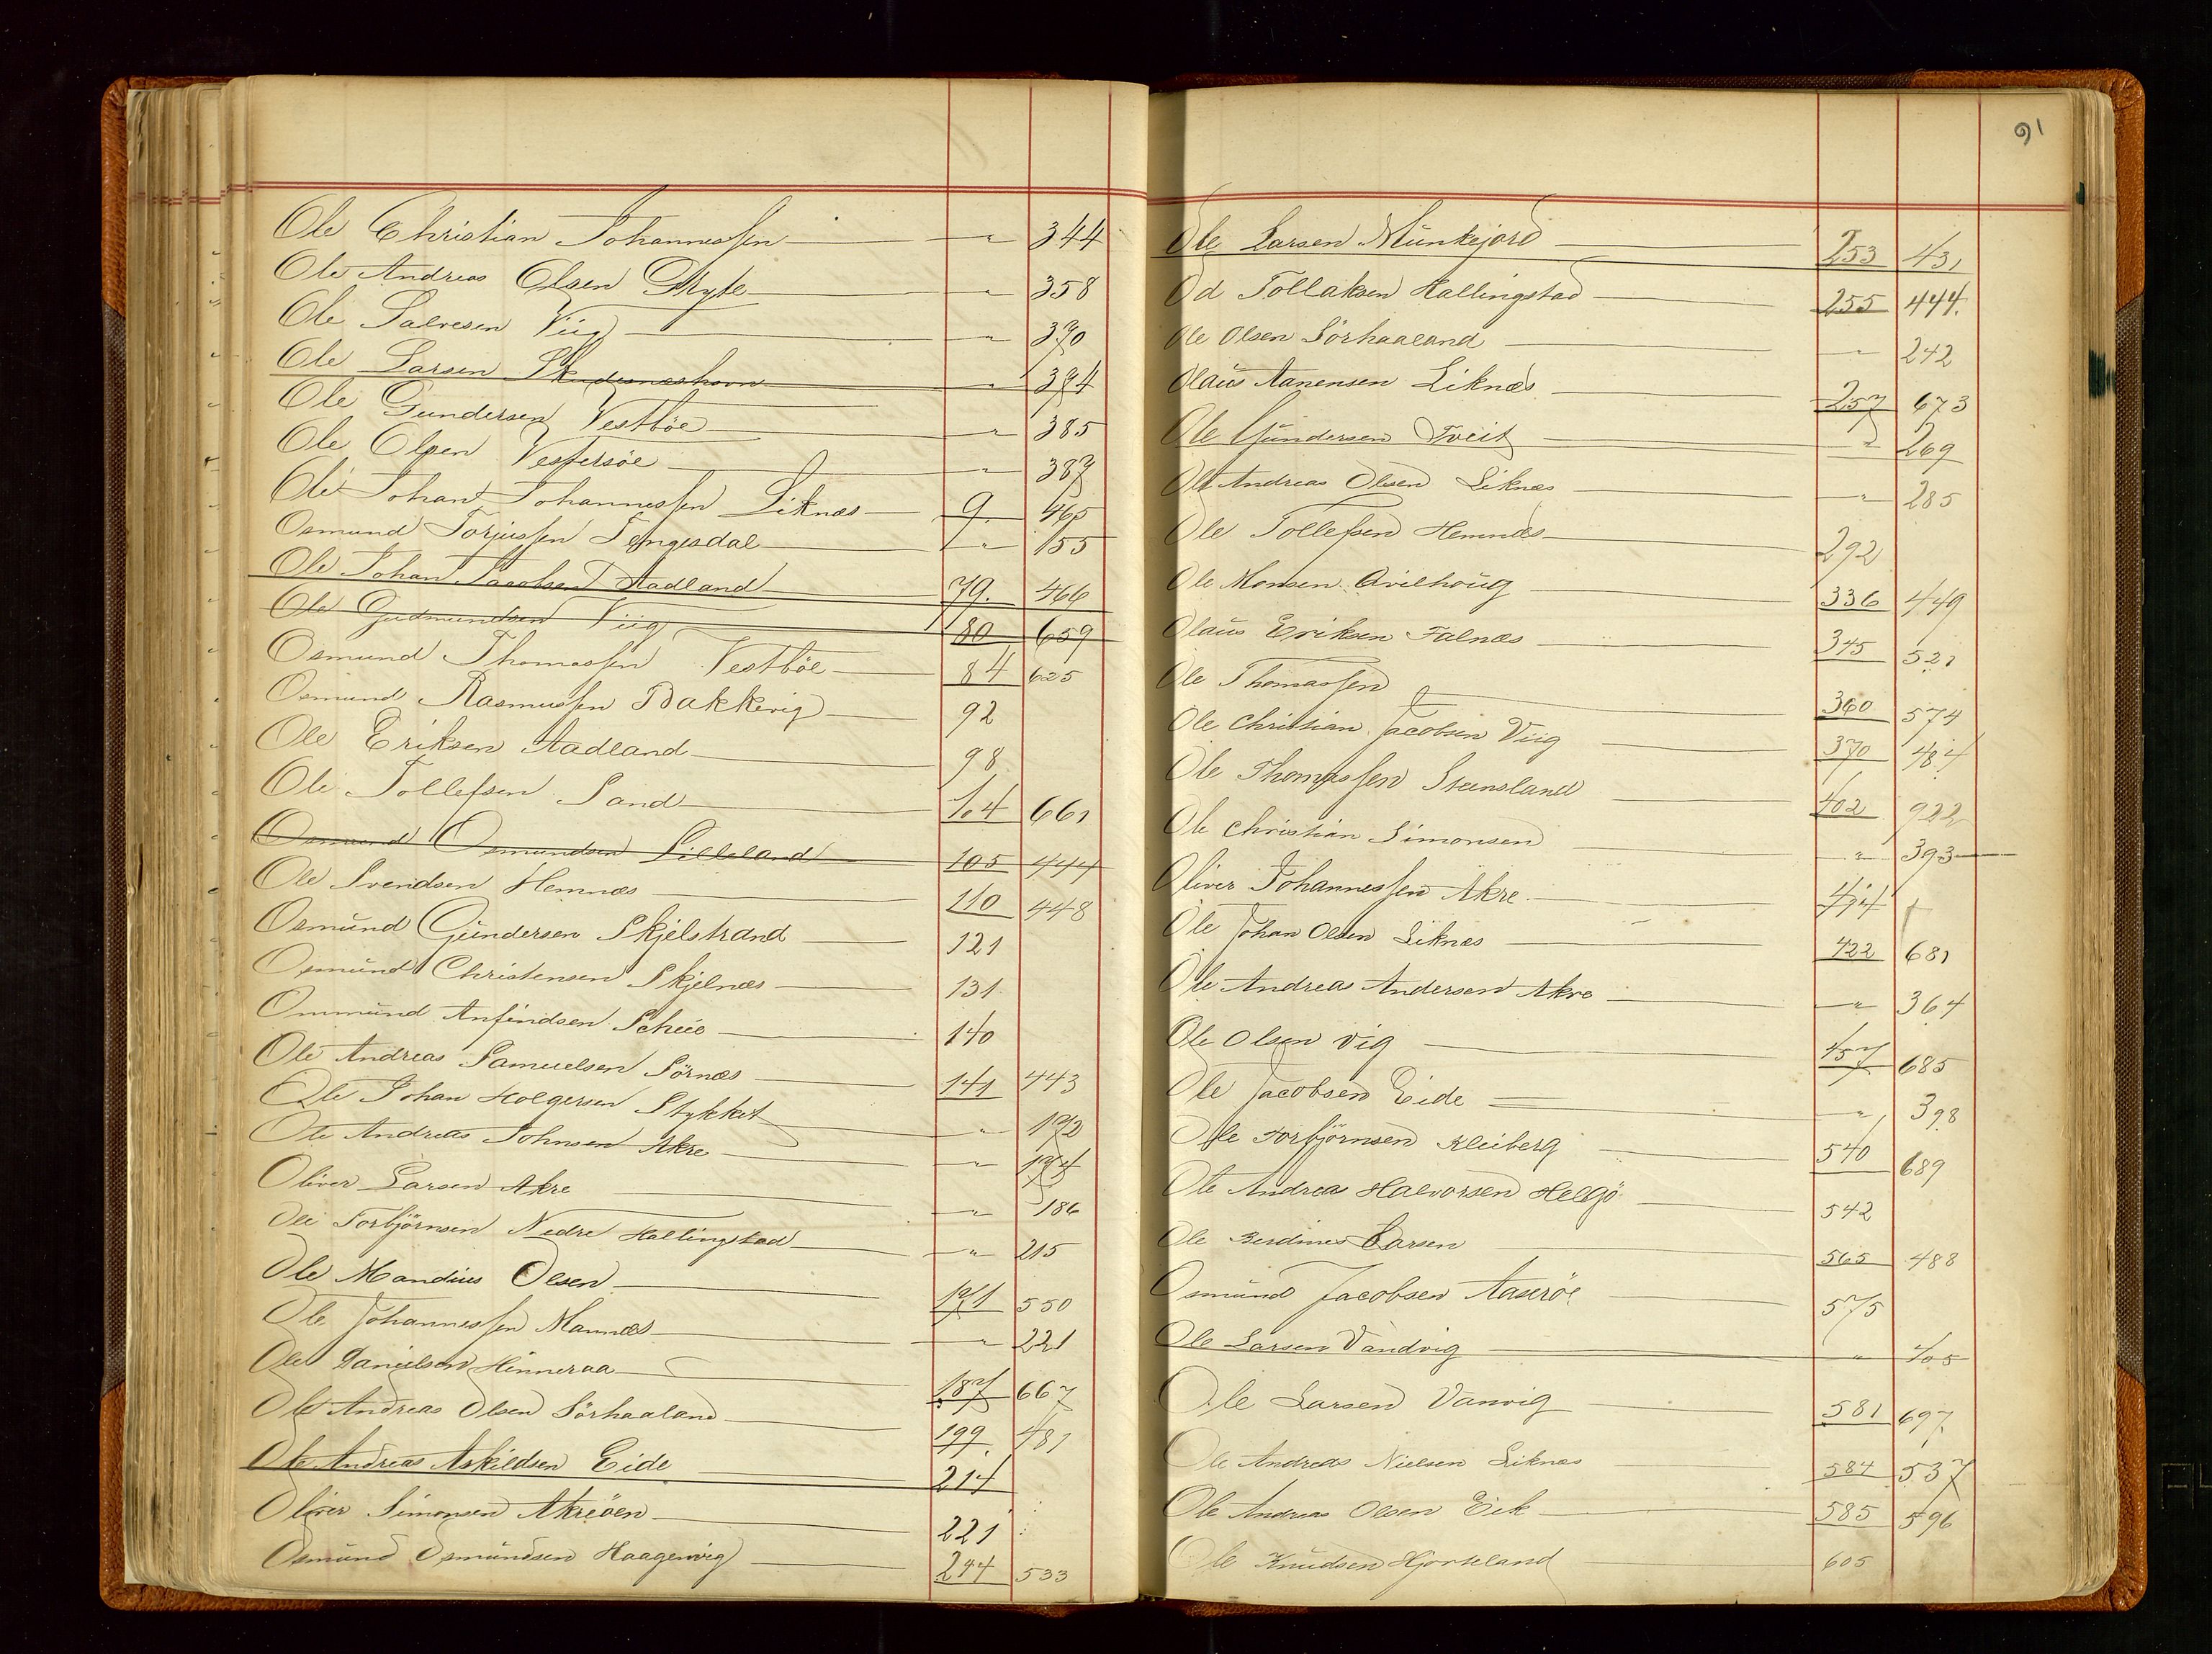 Ole Christian Johannessen " 344
Ole Andreas Olsen Myle " 358
Ole Salvesen Viig " 370
Ole Larsen Skudesnæshavn " 374
Ole Gundersen Vestbøe " 385
Ole Olsen " 387
Ole Johan Johannessen Liknæs 9. 465
Osmund Torjussen Tengesdal " 155
Ole Johan Jacobsen Aadland 79. 466
Ole Gudmundsen Viig 80 659
Osmund Thomassen Vestbøe 84 625
Osmund Rasmussen Bakkevig 92
Ole Eriksen Aadland 98
Ole Tollefsen Sand 104 661
Osmund Osmundsen Lilleland 105 444
Ole Svendsen Hemnæs 110 448
Osmund Gundersen Skjelstrand 121
Osmund Christensen Skjelnæs 131
Ommund Anfindsen Scheie 140
Ole Andreas Samuelsen Sörnæs 141 443
Ole Johan Holgersen Stykket " 172
Ole Andreas Johnsen Akre " 174
Oliver Larsen Akre " 186
Ole Torbjörnsen Nedre Hallingstad " 215
Ole Mandius Olsen 171 550
Ole Johannessen Mannæs " 221
Ole Danielsen Hinneraa 187 667
Ole Andreas Olsen Sörhaaland 199. 481
Ole Andreas Askildsen Eide 214
Oliver Simonsen Akreöen 221
Osmund Osmundsen Haagenvig 244 533
91
Ole Larsen Munkejord 253 431
Od Tollaksen Hallingstad 255 444.
Ole Olsen Sörhaaland " 242
Olaus Aanensen Liknæs 257 673
Ole Gundersen Tveit " 269
Ole Andreas Olsen Liknæs " 285
Ole Tollefsen Hemnæs 292
Ole Monsen Qvilhoug 336 449
Olaus Eriksen Falnæs 345 521
Ole Thomassen 360 574
Ole Christian Jacobsen Viig 370 484
Ole Thomassen Steensland 402 922
Ole Christian Simonsen " 393
Oliver Johannessen Akre 414
Ole Johan Olsen Liknæs 422 681
Ole Andreas Andersen Akre " 364
Ole Olsen Vig 457 685
Ole Jacobsen Eide " 398
Ole Torbjörnsen Kleiberg 540 689
Ole Andreas Halvorsen Helgö 542
Ole Berdines Larsen 565 488
Osmund Jacobsen Aaseröe 575
Ole Larsen Vandvig " 405
Ole Larsen Vanvig 581 697.
Ole Andreas Nielsen Liknæs 584 537
Ole Andreas Olsen Eik 585 596
Ole Knudsen Hjorteland 605